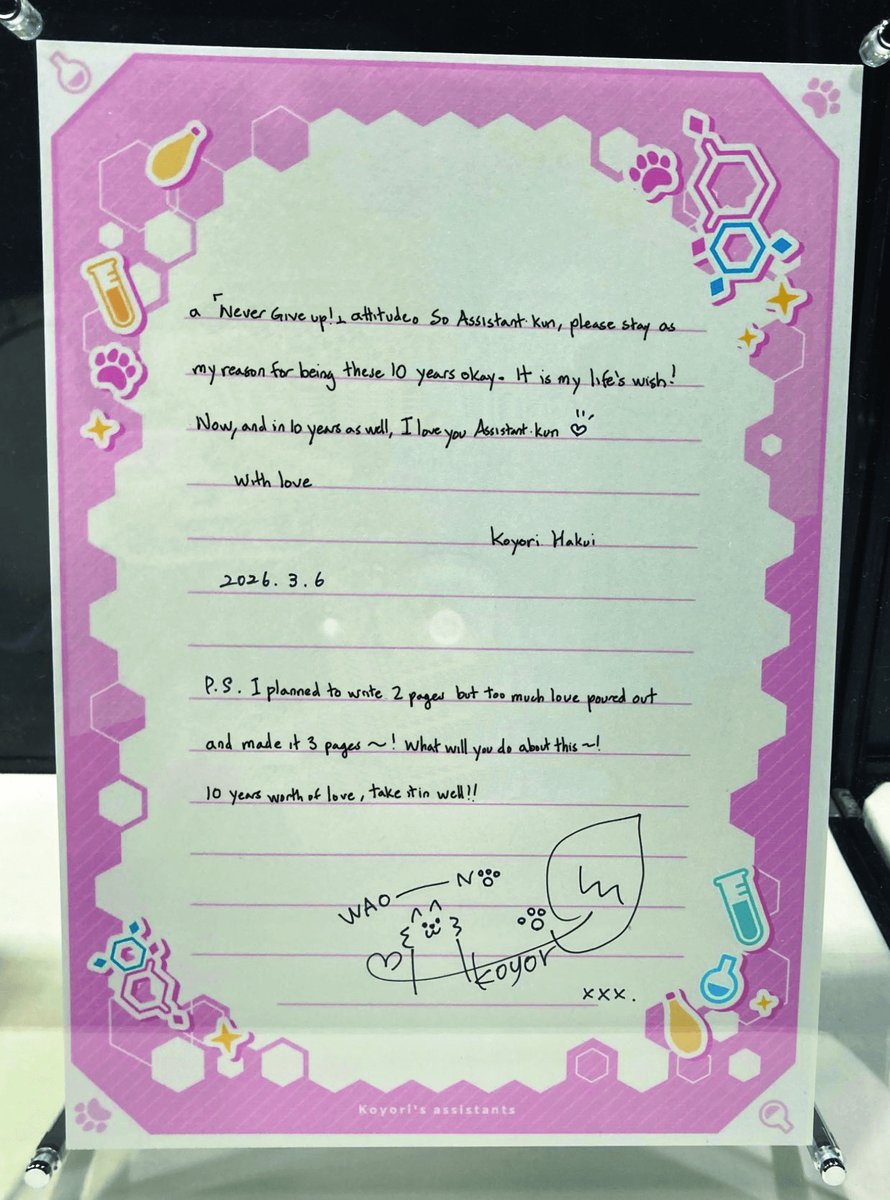 a 「Never Give up!」 attitude。 So Assistant-kun, please stay as
my reason for being these 10 years okay. It is my life's wish!
Now, and in 10 years as well, I love you Assistant-kun ♡
with love
Koyori Hakui
2026. 3. 6
P.S. I planned to write 2 pages but too much love poured out
and made it 3 pages ~! What will you do about this ~!
10 years worth of love, take it in well!!
WAO—N
Koyori
xxx.
Koyori's assistants